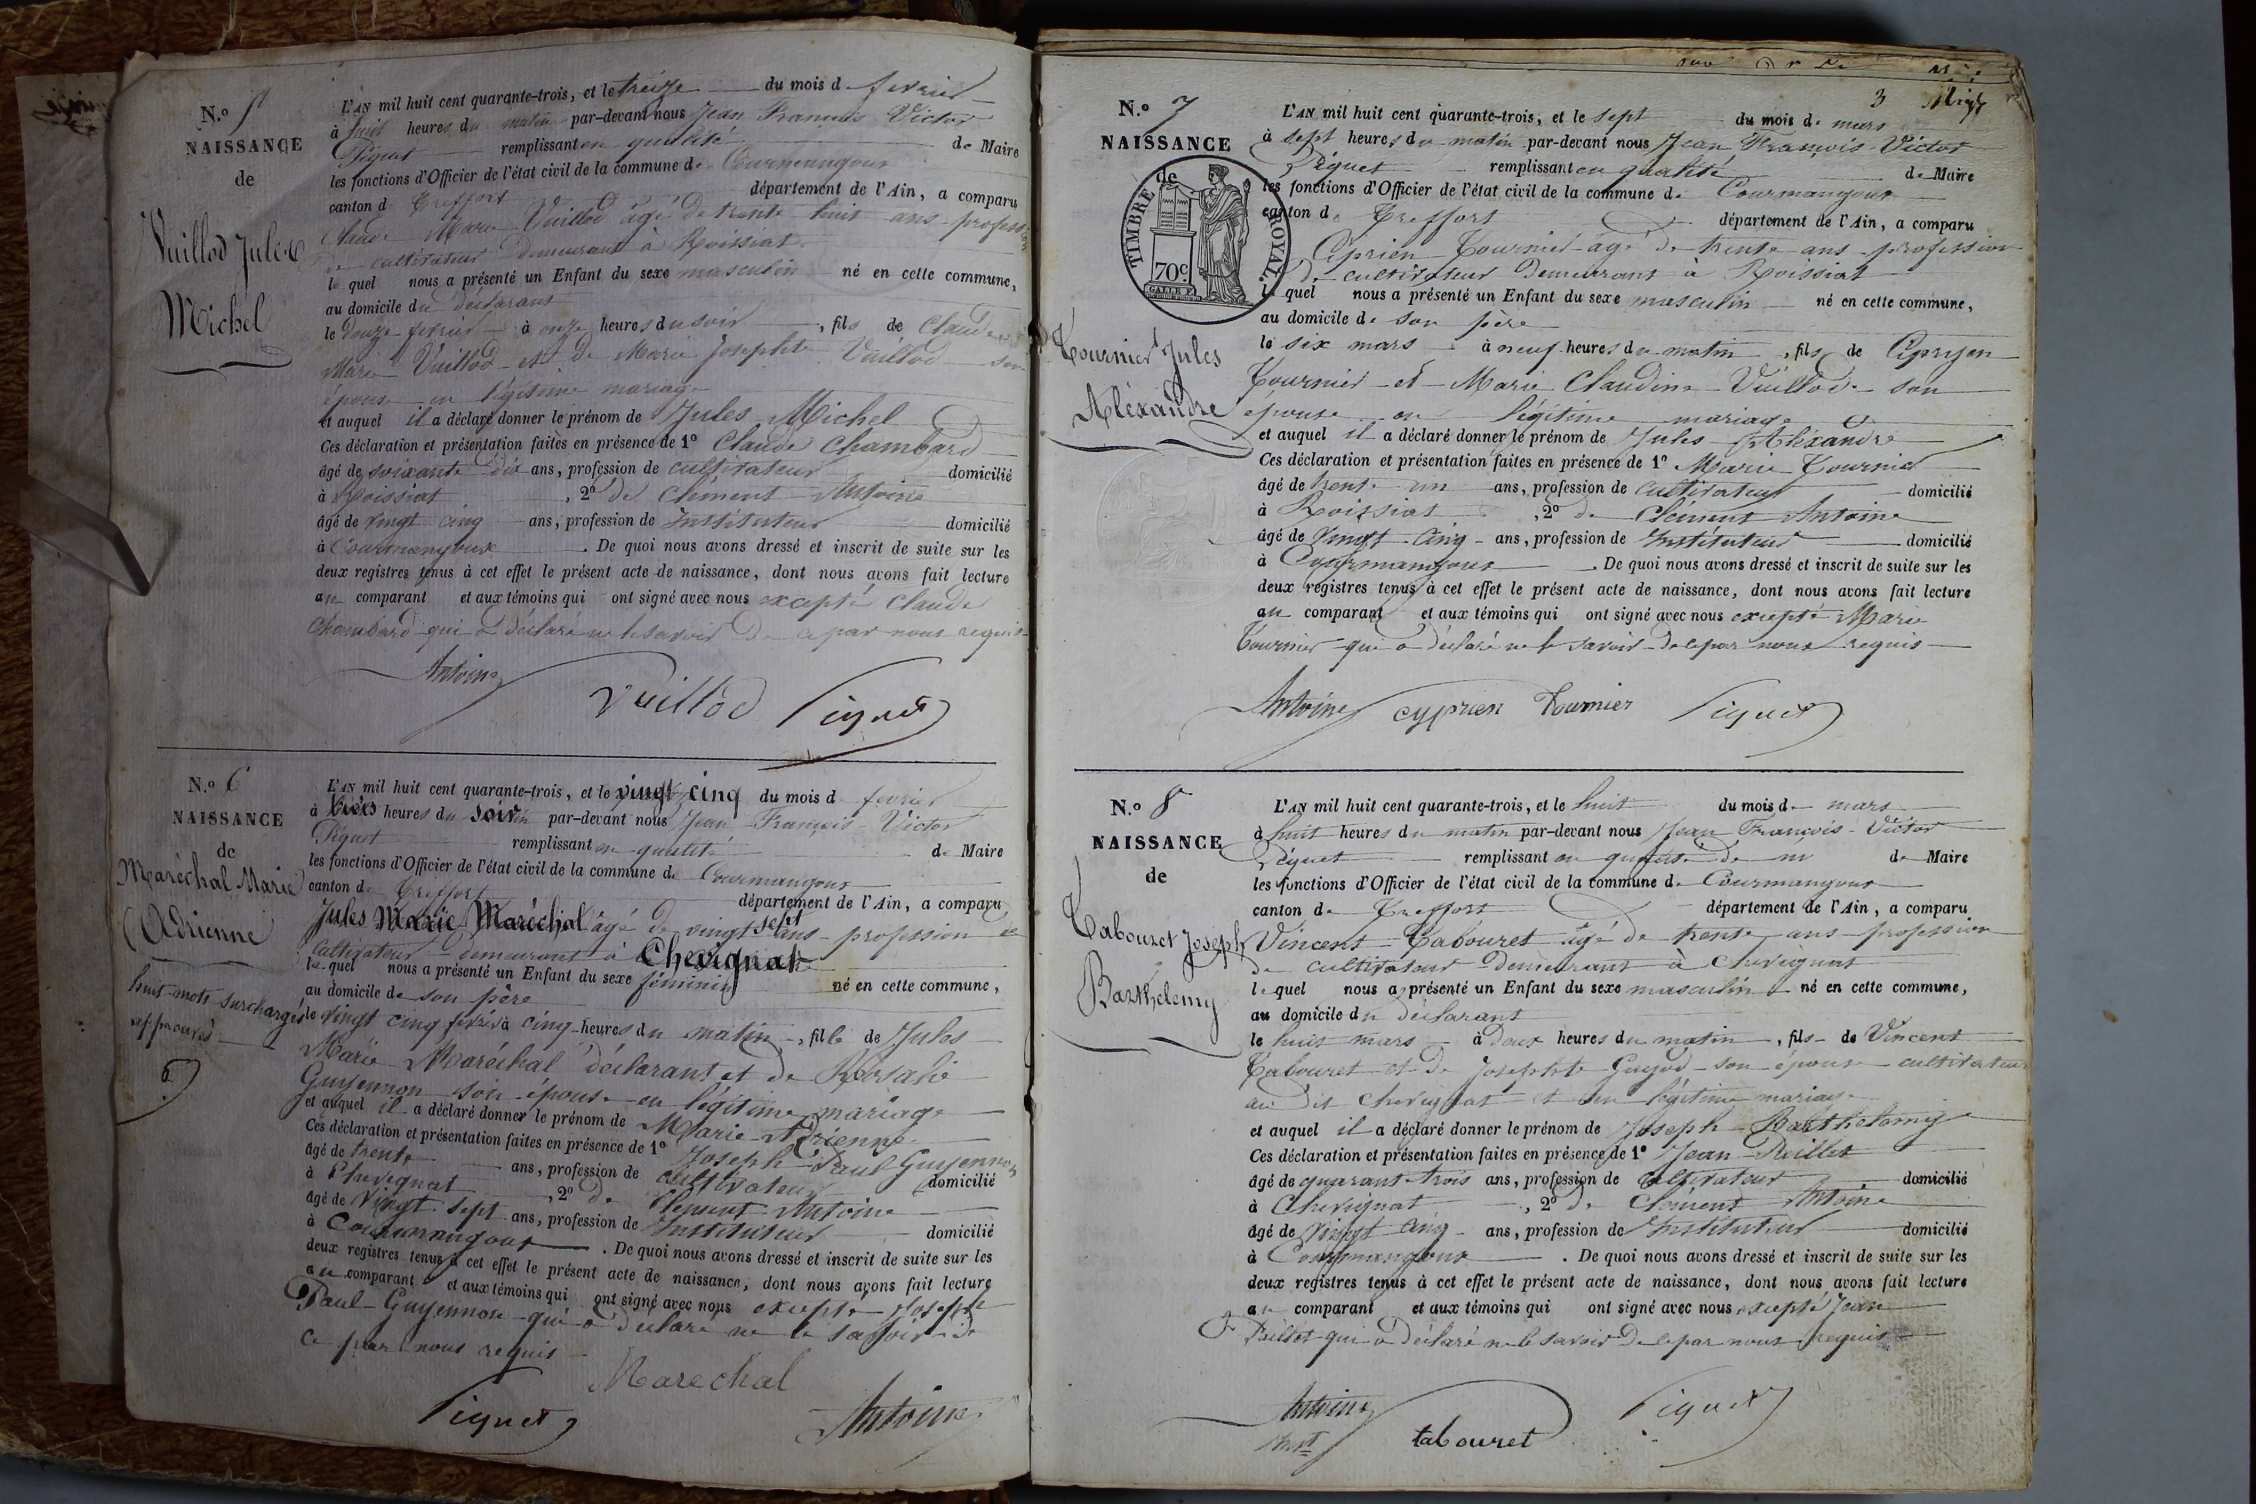 N.o 5
NAISSANCE
de
Vuillod Jules
Michel
L'AN mil huit cent quarante-trois, et le treize du mois d fevrier
à huit heures du matin par-devant nous Jean François Victor
Piquet remplissant en qualité de Maire
les fonctions d'Officier de l'état civil de la commune de Courmangoux
canton de Treffort département de l'Ain, a comparu
Claude Marie Vuillod âgé de trente huit ans profession
de cultivateur demeurant à Roissiat
lequel nous a présenté un Enfant du sexe masculin né en cette commune,
au domicile du declarant
le douze fevrier à onze heures du soir, fils de Claude
Marie Vuillod et de Marie Josephte Vuillod son
épouse en légitime mariage
et auquel il a déclaré donner le prénom de Jules Michel
Ces déclaration et présentation faites en présence de 1o Claude Chambard
âgé de soixante dix ans, profession de cultivateur domicilié
à Roissiat, 2o de Clément Antoine
âgé de vingt cinq ans, profession de Instituteur domicilié
à Courmangoux. De quoi nous avons dressé et inscrit de suite sur les
deux registres tenus à cet effet le présent acte de naissance, dont nous avons fait lecture
au comparant et aux témoins qui ont signé avec nous excepté Claude
Chambard qui a déclaré ne le savoir de ce par nous requis
Antoine Vuillod Piquet
N.o 6
NAISSANCE
de
Maréchal Marie
Adrienne
huit mots surchargés
approuvés
L'AN mil huit cent quarante-trois, et le vingt cinq du mois d fevrier
à trois heures du soir par-devant nous Jean François Victor
Piquet remplissant en qualité de Maire
les fonctions d'Officier de l'état civil de la commune de Courmangoux
canton de Treffort département de l'Ain, a comparu
Jules Marie Maréchal âgé de vingt sept ans profession de
cultivateur demeurant à Chevignat
lequel nous a présenté un Enfant du sexe féminin né en cette commune,
au domicile de son père
le vingt cinq fevrier à cinq heures du matin, fille de Jules
Marie Maréchal déclarant et de Rosalie
Guyennon son épouse en légitime mariage
et auquel il a déclaré donner le prénom de Marie Adrienne
Ces déclaration et présentation faites en présence de 1o Joseph Paul Guyennon
âgé de trente ans, profession de cultivateur domicilié
à Chevignat, 2o de Clément Antoine
âgé de vingt sept ans, profession de Instituteur domicilié
à Courmangoux. De quoi nous avons dressé et inscrit de suite sur les
deux registres tenus à cet effet le présent acte de naissance, dont nous avons fait lecture
au comparant et aux témoins qui ont signé avec nous excepté Joseph
Paul Guyennon qui a déclaré ne le savoir de
ce par nous requis
Marechal
Piquet Antoine
3
N.o 7
NAISSANCE
de
TIMBRE ROYAL.
70c
GALLE F.
Tournier Jules
Aléxandre
L'AN mil huit cent quarante-trois, et le sept du mois de mars
à sept heures du matin par-devant nous Jean François Victor
Piquet remplissant en qualité de Maire
les fonctions d'Officier de l'état civil de la commune de Courmangoux
canton de Treffort département de l'Ain, a comparu
Ciprien Tournier âgé de trente ans profession
de cultivateur demeurant à Roissiat
lequel nous a présenté un Enfant du sexe masculin né en cette commune,
au domicile de son père
le six mars à neuf heures du matin, fils de Ciprien
Tournier et Marie Claudine Vuillod son
épouse en légitime mariage
et auquel il a déclaré donner le prénom de Jules Aléxandre
Ces déclaration et présentation faites en présence de 1o Marie Tournier
âgé de trente un ans, profession de cultivateur domicilié
à Roissiat, 2o de Clément Antoine
âgé de vingt cinq ans, profession de Instituteur domicilié
à Courmangoux. De quoi nous avons dressé et inscrit de suite sur les
deux registres tenus à cet effet le présent acte de naissance, dont nous avons fait lecture
au comparant et aux témoins qui ont signé avec nous excepté Marie
Tournier qui a déclaré ne le savoir de ce par nous requis
Antoine cyprien tournier Piquet
N.o 8
NAISSANCE
de
Tabouret Joseph
Barthelemy
L'AN mil huit cent quarante-trois, et le huit du mois de mars
à huit heures du matin par-devant nous Jean François Victor
Piquet remplissant en qualité de Maire
les fonctions d'Officier de l'état civil de la commune de Courmangoux
canton de Treffort département de l'Ain, a comparu
Vincent Tabouret âgé de trente ans profession
de cultivateur demeurant à Chevignat
lequel nous a présenté un Enfant du sexe masculin né en cette commune,
au domicile du déclarant
le huit mars à deux heures du matin, fils de Vincent
Tabouret et de Josephte Guyod son épouse cultivateur
au dit Chevignat et en légitime mariage
et auquel il a déclaré donner le prénom de Joseph Barthelemy
Ces déclaration et présentation faites en présence de 1o Jean Rillet
âgé de quarante trois ans, profession de cultivateur domicilié
à Chevignat, 2o de Clément Antoine
âgé de vingt cinq ans, profession de Instituteur domicilié
à Courmangoux. De quoi nous avons dressé et inscrit de suite sur les
deux registres tenus à cet effet le présent acte de naissance, dont nous avons fait lecture
au comparant et aux témoins qui ont signé avec nous excepté Jean
Rillet qui a déclaré ne le savoir de ce par nous requis
Antoine Piquet
inst tabouret